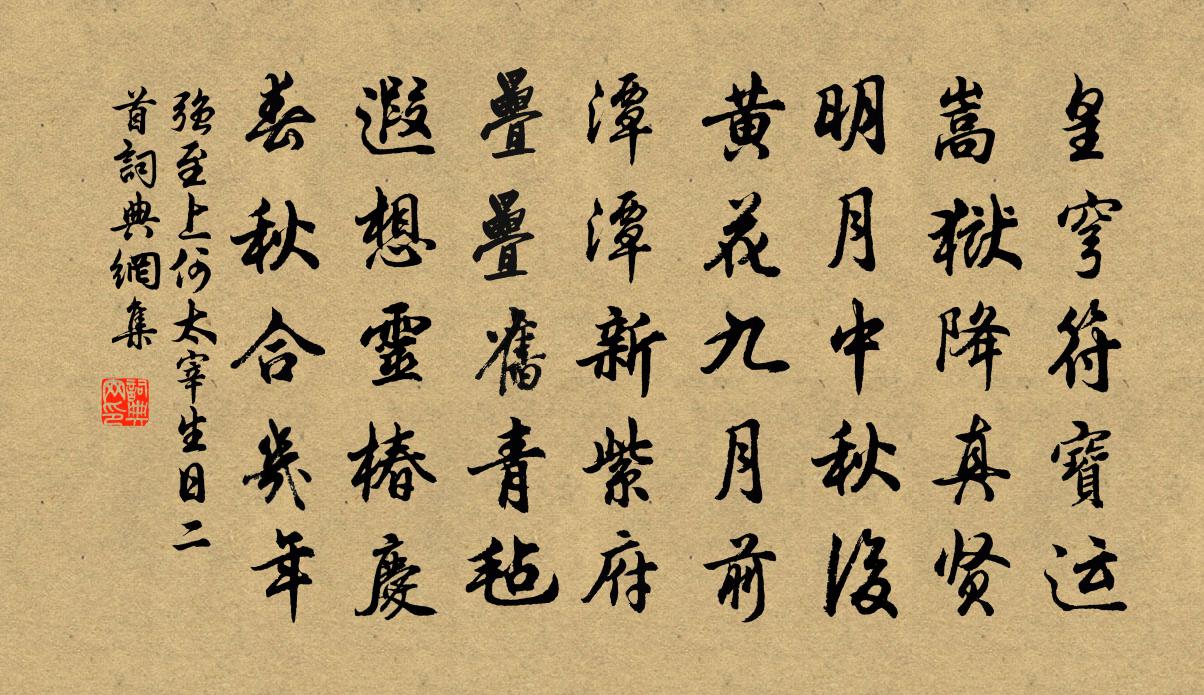 皇穹符寶运
嵩嶽降真贤
明月中秋後
黄花九月前
潭潭新紫府
疊疊舊青毡
遐想靈椿慶
春秋合幾年
強至上何太宰生日二
首詞典網集
詞典网印